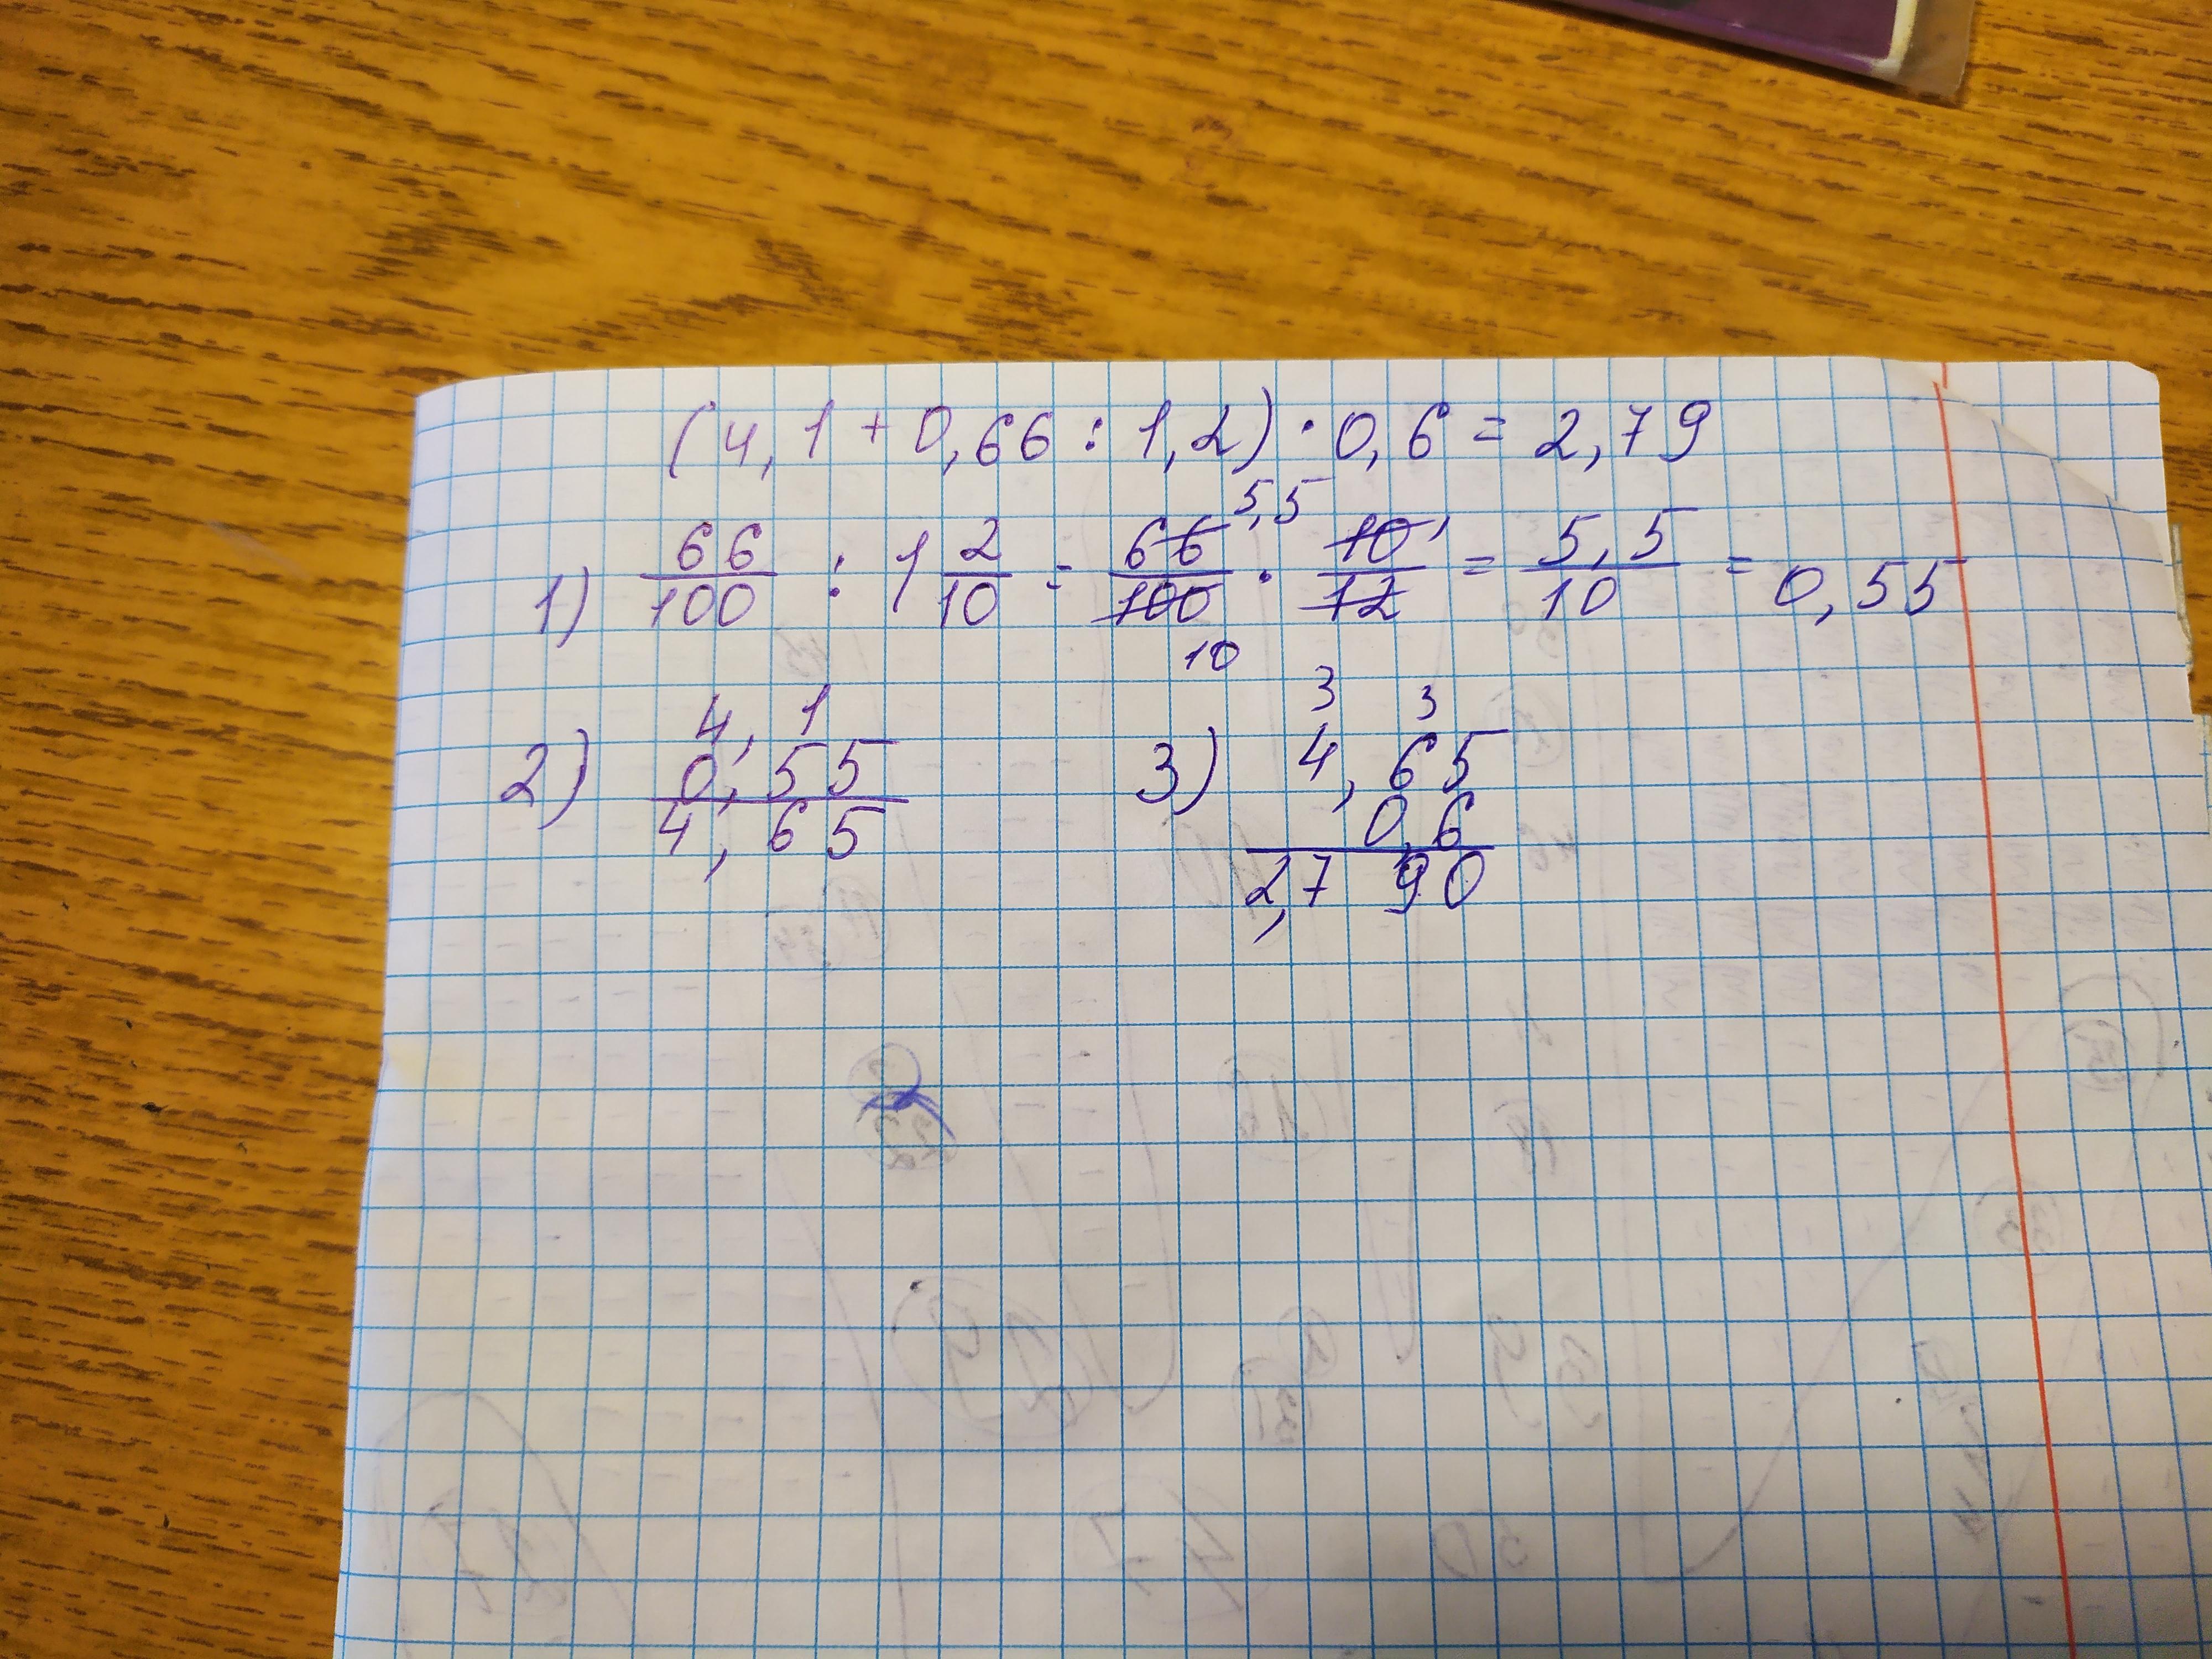 (4,1 + 0,66 : 1,2) · 0,6 = 2,79
5,5
1) 66/100 : 1 2/10 = 66/100 · 10/12 = 5,5/10 = 0,55
10
2) 4,1
0,55
4,65
3) 3 3
4,65
0,6
2,790